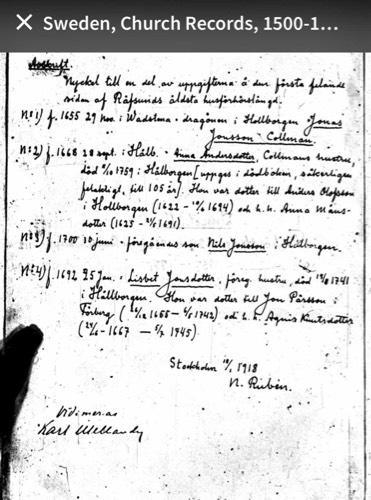 Sweden, Church Records, 1500-1...
Avskrift.
Nyckel till en del av uppgifterna å den första felande
sidan af Räfsunds äldsta husförhörslängd.
No 1) f. 1655 29 nov. i Wadstena - dragonen i Hållborgen Jonas
Jonsson Collman.
No 2) f. 1668 28 sept. i Hålb. - Anna Andersdotter, Collmans hustru,
död 1759 i Hålborgen [uppges i dödboken, säkerligen
felaktigt, till 105 år]. Hon var dotter till Anders Olofsson
i Hållborgen (1622 - 1694) och h. h. Anna Måns-
dotter (1625 - 1691).
No 3) f. 1700 10 juni - föregåendes son Nils Jonsson i Hålborgen.
No 4) f. 1692 25 Jan. - Lisbet Jonsdotter, föreg. hustru, död 1741
i Hållborgen. Hon var dotter till Jon Pärsson i
Förberg ( 1655 - 1742) och h. h. Agnis Knutsdotter
( 1667 — 1945).
Stockholm 1918
N. Rubén.
Vidimeras
Karl